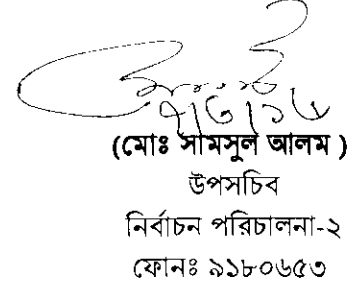 ৭/৩/১৬
(মোঃ সামসুল আলম )
উপসচিব
নির্বাচন পরিচালনা-২
ফোনঃ ৯১৮০৬৫৩